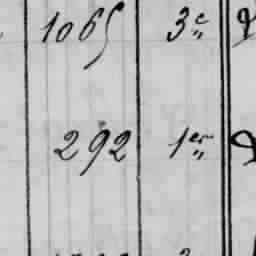 1065 3e
292 1er